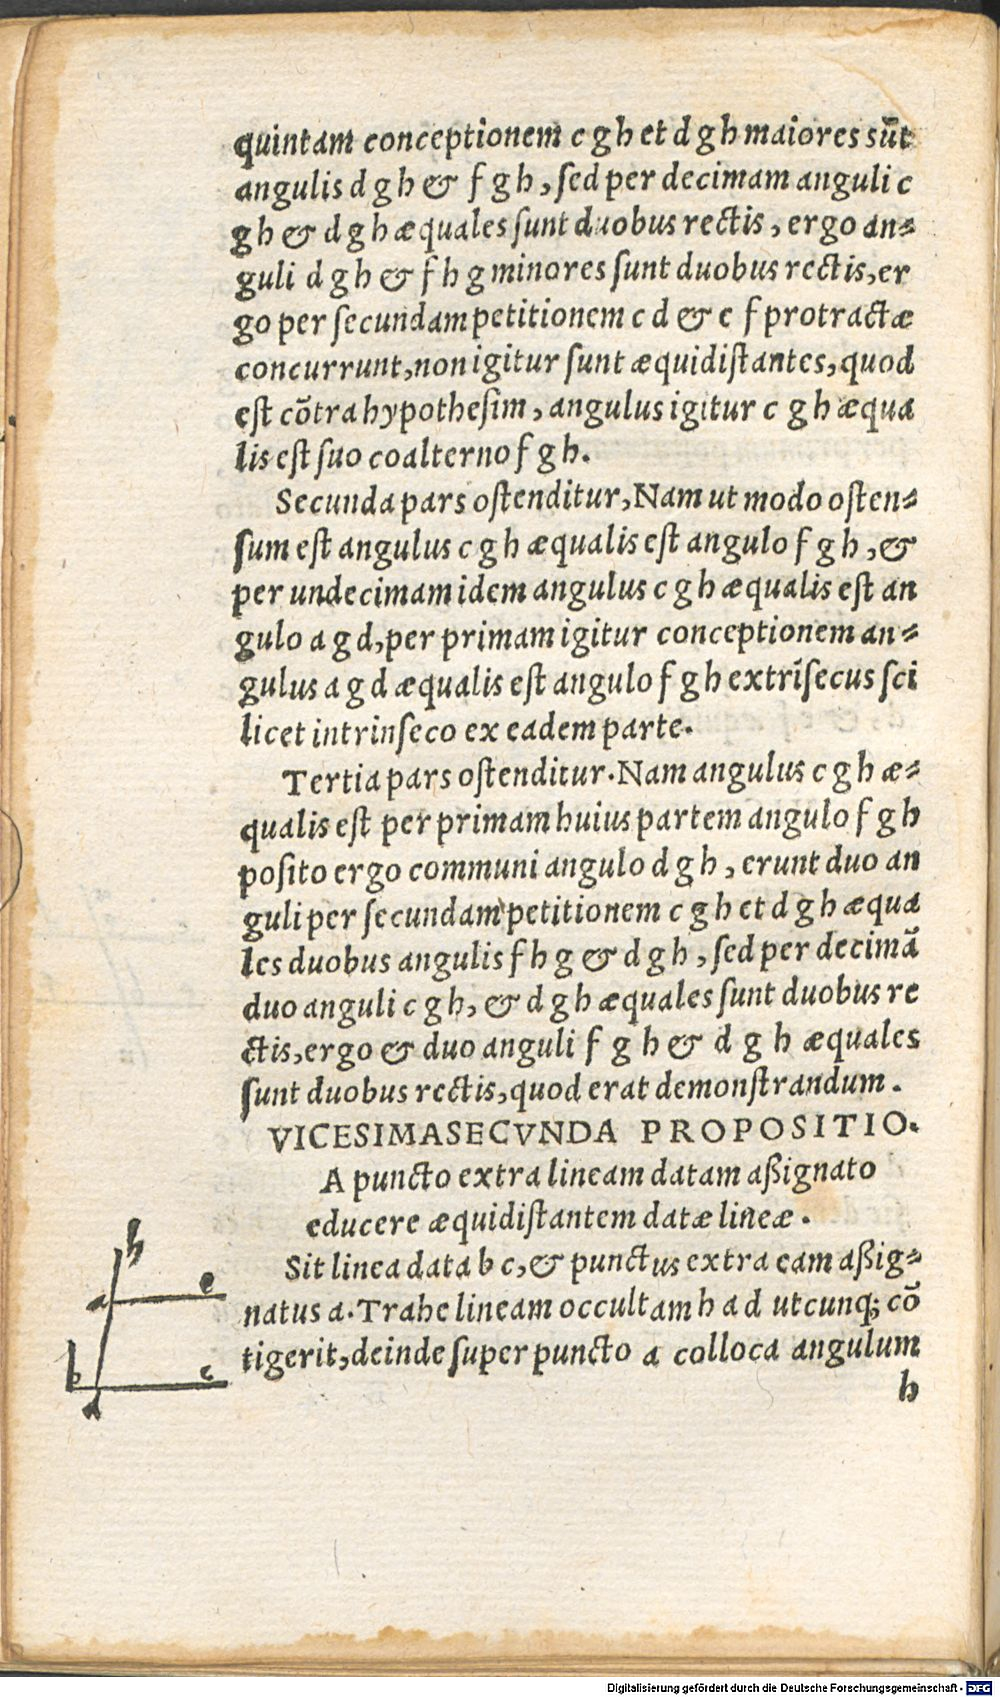 quintam conceptionem c g h et d g h maiores sūt
angulis d g h & f g h, ſed per decimam anguli c
g h & d g h æquales ſunt duobus rectis, ergo an-
guli d g h & f h g minores ſunt duobus rectis, er
go per ſecundam petitionem c d & e f protractæ
concurrunt, non igitur ſunt æquidiſtantes, quod
eſt cōtra hypotheſim, angulus igitur c g h æqua
lis eſt ſuo coalterno f g h.
Secunda pars oſtenditur, Nam ut modo oſten-
ſum eſt angulus c g h æqualis eſt angulo f g h, &
per undecimam idem angulus c g h æqualis eſt an
gulo a g d, per primam igitur conceptionem an-
gulus a g d æqualis eſt angulo f g h extrīſecus ſci
licet intrinſeco ex eadem parte.
Tertia pars oſtenditur. Nam angulus c g h æ-
qualis eſt per primam huius partem angulo f g h
poſito ergo communi angulo d g h, erunt duo an
guli per ſecundam petitionem c g h et d g h æqua
les duobus angulis f h g & d g h, ſed per decimā
duo anguli c g h, & d g h æquales ſunt duobus re
ctis, ergo & duo anguli f g h & d g h æquales
ſunt duobus rectis, quod erat demonſtrandum.
VICESIMASECVNDA PROPOSITIO.
A puncto extra lineam datam aßignato
educere æquidiſtantem datæ lineæ.
Sit linea data b c, & punctus extra eam aßig-
natus a. Trahe lineam occultam h a d utcunq; cō
tigerit, deinde ſuper puncto a colloca angulum
h
h
a e
b c
d
Digitalisierung gefördert durch die Deutsche Forschungsgemeinschaft - DFG